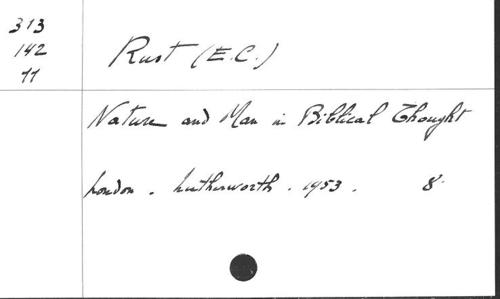 313
142
77
Rust (E.C.)
Nature and Man in Biblical Thought
London. Lutherworth. 1953. 8.